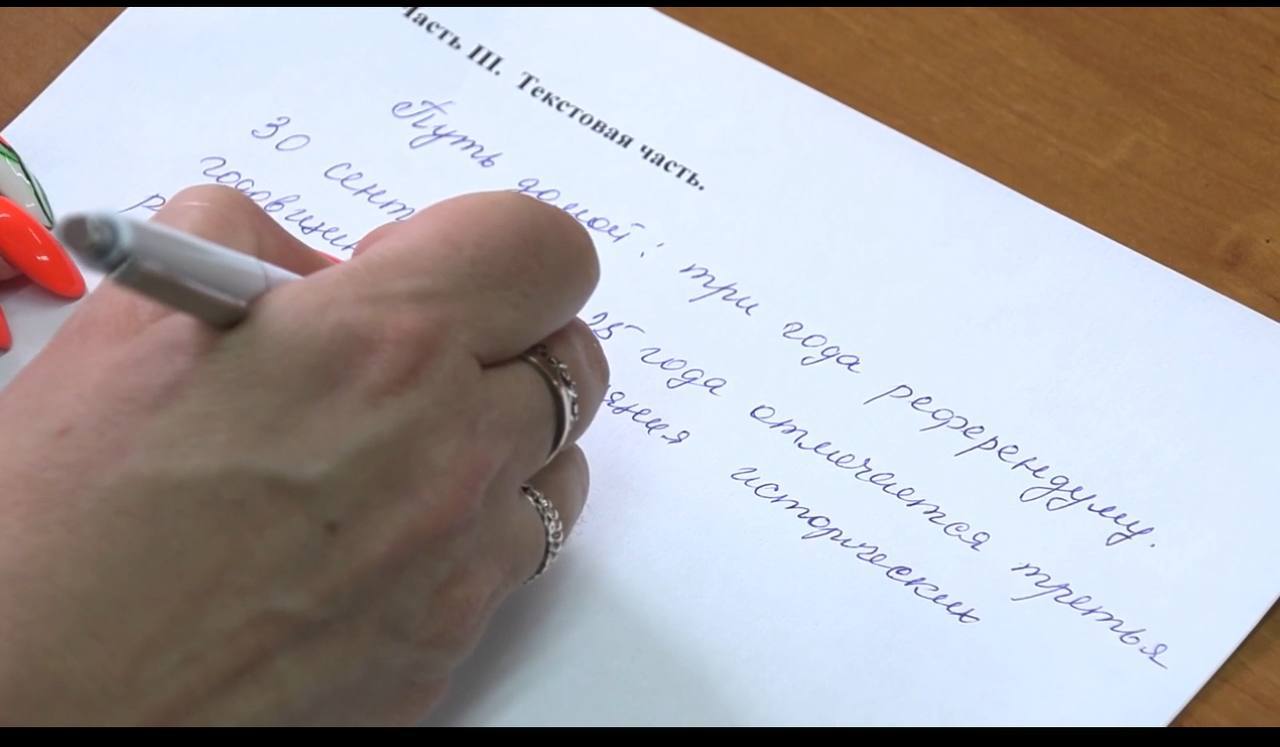 Часть III. Текстовая часть.
Путь домой: три года референдуму.
30 25 года отмечается третья
исторически